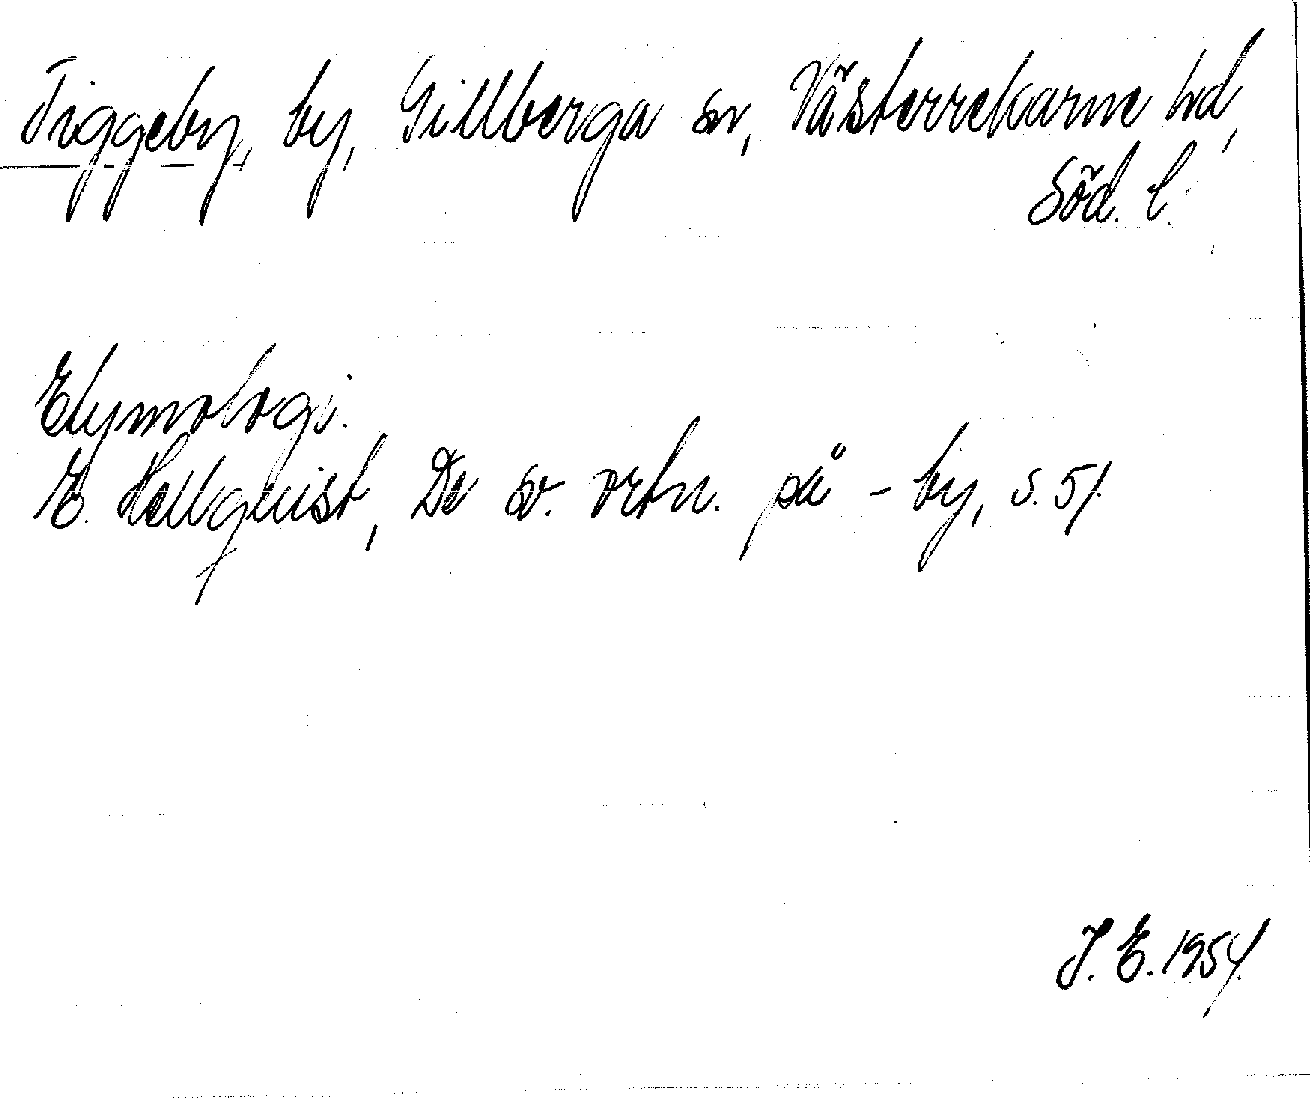 Tiggeby, by, Gillberga sn, Västerrekarne hd,
Söd. l.
Etymologi.
E. Hellquist, De sv. ortn. på -by, s. 51.
J. E. 1954.